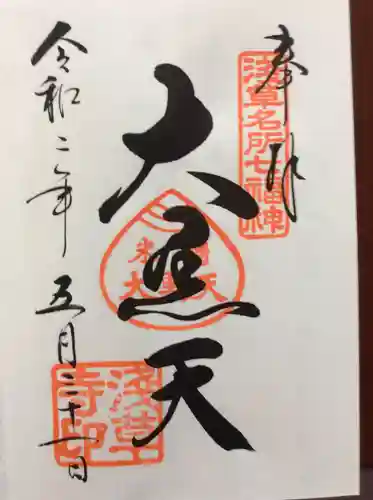 奉拝
淺草名所七福神
大黒天
淺草寺印
令和二年五月二十一日